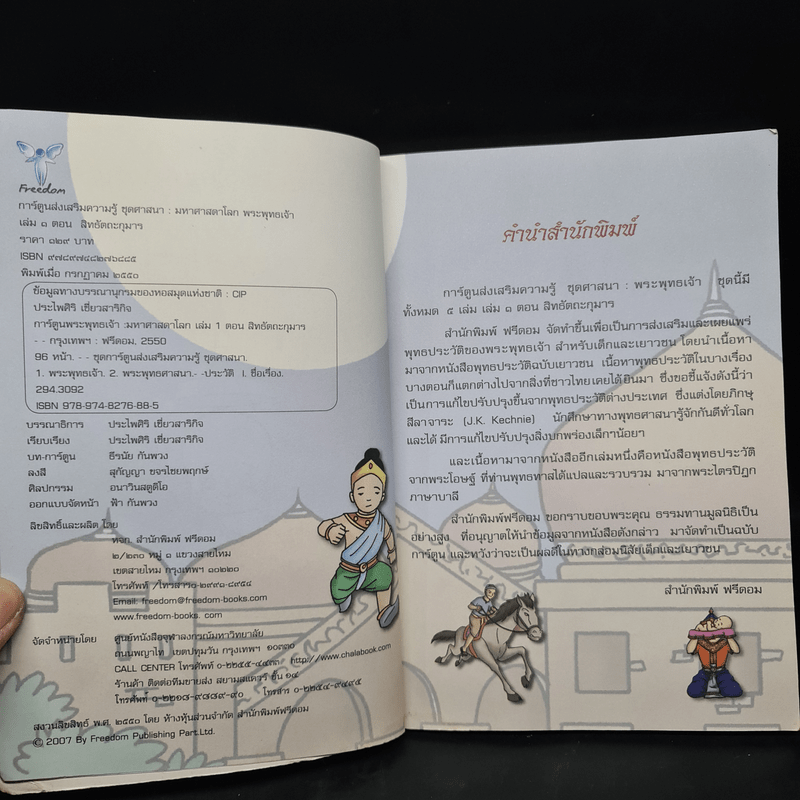 Freedom
การ์ตูนส่งเสริมความรู้ ชุดศาสนา : มหาศาสดาโลก พระพุทธเจ้า
เล่ม ๑ ตอน สิทธัตถะกุมาร
ราคา ๑๒๙ บาท
ISBN ๙๗๘๙๗๔๘๒๗๖๘๘๕
พิมพ์เมื่อ กรกฎาคม ๒๕๕๐
ข้อมูลทางบรรณานุกรมของหอสมุดแห่งชาติ : CIP
ประไพศิริ เชี่ยวสาริกิจ
การ์ตูนพระพุทธเจ้า :มหาศาสดาโลก เล่ม 1 ตอน สิทธัตถะกุมาร
- - กรุงเทพฯ : ฟรีดอม, 2550
96 หน้า. - - ชุดการ์ตูนส่งเสริมความรู้ ชุดศาสนา.
1. พระพุทธเจ้า. 2. พระพุทธศาสนา.- -ประวัติ I. ชื่อเรื่อง.
294.3092
ISBN 978-974-8276-88-5
บรรณาธิการ ประไพศิริ เชี่ยวสาริกิจ
เรียบเรียง ประไพศิริ เชี่ยวสาริกิจ
บท-การ์ตูน ธีรนัย กันพวง
ลงสี สุกัญญา ขจรไชยพฤกษ์
ศิลปกรรม อนาวินสตูดิโอ
ออกแบบจัดหน้า ฟ้า กันพวง
ลิขสิทธิ์และผลิต โดย
หจก. สำนักพิมพ์ ฟรีดอม
๒/๒๓๐ หมู่ ๑ แขวงสายไหม
เขตสายไหม กรุงเทพฯ ๑๐๒๒๐
โทรศัพท์ /โทรสาร๐-๒๙๙๑-๘๙๕๔
Email: freedom@freedom-books.com
www.freedom-books. com
จัดจำหน่ายโดย ศูนย์หนังสือจุฬาลงกรณ์มหาวิทยาลัย
ถนนพญาไท เขตปทุมวัน กรุงเทพฯ ๑๐๓๓๐
CALL CENTER โทรศัพท์ ๐-๒๒๕๕-๔๔๓๓ http://www.chulabook.com
ร้านค้า ติดต่อทีมขายส่ง สยามสแควร์ ชั้น ๑๔
โทรศัพท์ ๐-๒๒๑๘-๙๘๘๙-๙๐ โทรสาร ๐-๒๒๕๔-๙๔๙๕
สงวนลิขสิทธิ์ พ.ศ. ๒๕๕๐ โดย ห้างหุ้นส่วนจำกัด สำนักพิมพ์ฟรีดอม
© 2007 By Freedom Publishing Part.Ltd.
คำนำสำนักพิมพ์
การ์ตูนส่งเสริมความรู้ ชุดศาสนา : พระพุทธเจ้า ชุดนี้มี
ทั้งหมด ๕ เล่ม เล่ม ๑ ตอน สิทธัตถะกุมาร
สำนักพิมพ์ ฟรีดอม จัดทำขึ้นเพื่อเป็นการส่งเสริมและเผยแพร่
พุทธประวัติของพระพุทธเจ้า สำหรับเด็กและเยาวชน โดยนำเนื้อหา
มาจากหนังสือพุทธประวัติฉบับเยาวชน เนื้อหาพุทธประวัติในบางเรื่อง
บางตอนก็แตกต่างไปจากสิ่งที่ชาวไทยเคยได้ยินมา ซึ่งขอชี้แจ้งดังนี้ว่า
เป็นการแก้ไขปรับปรุงขึ้นจากพุทธประวัติต่างประเทศ ซึ่งแต่งโดยภิกษุ
สีลาจาระ (J.K. Kechnie) นักศึกษาทางพุทธศาสนารู้จักกันดีทั่วโลก
และได้ มีการแก้ไขปรับปรุงสิ่งบกพร่องเล็กๆน้อยๆ
และเนื้อหามาจากหนังสืออีกเล่มหนึ่งคือหนังสือพุทธประวัติ
จากพระโอษฐ์ ที่ท่านพุทธทาสได้แปลและรวบรวม มาจากพระไตรปิฎก
ภาษาบาลี
สำนักพิมพ์ฟรีดอม ขอกราบขอบพระคุณ ธรรมทานมูลนิธิเป็น
อย่างสูง ที่อนุญาตให้นำข้อมูลจากหนังสือดังกล่าว มาจัดทำเป็นฉบับ
การ์ตูน และหวังว่าจะเป็นผลดีในทางกล่อมนิสัยเด็กและเยาวชน
สำนักพิมพ์ ฟรีดอม